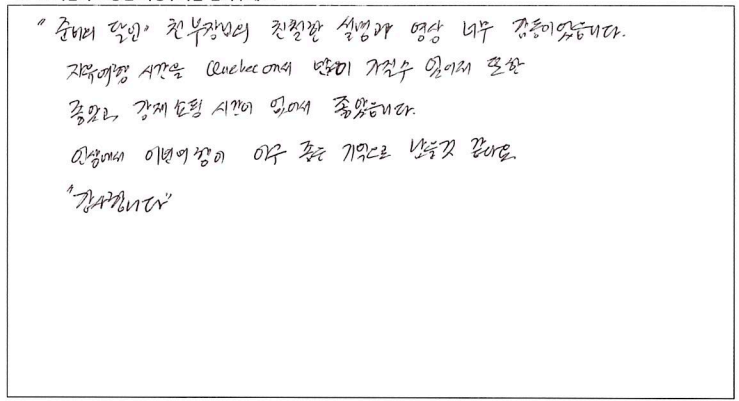 "준비의 달인" 천부장님의 친절한 설명과 영상 너무 감동이었습니다.
자유여행 시간을 Quebec에서 많이 가질수 있어서 또한
좋았고, 강제쇼핑 시간이 없어서 좋았습니다.
인생에서 이번여행이 아주 좋은 기억으로 남을것 같아요.
"감사합니다"